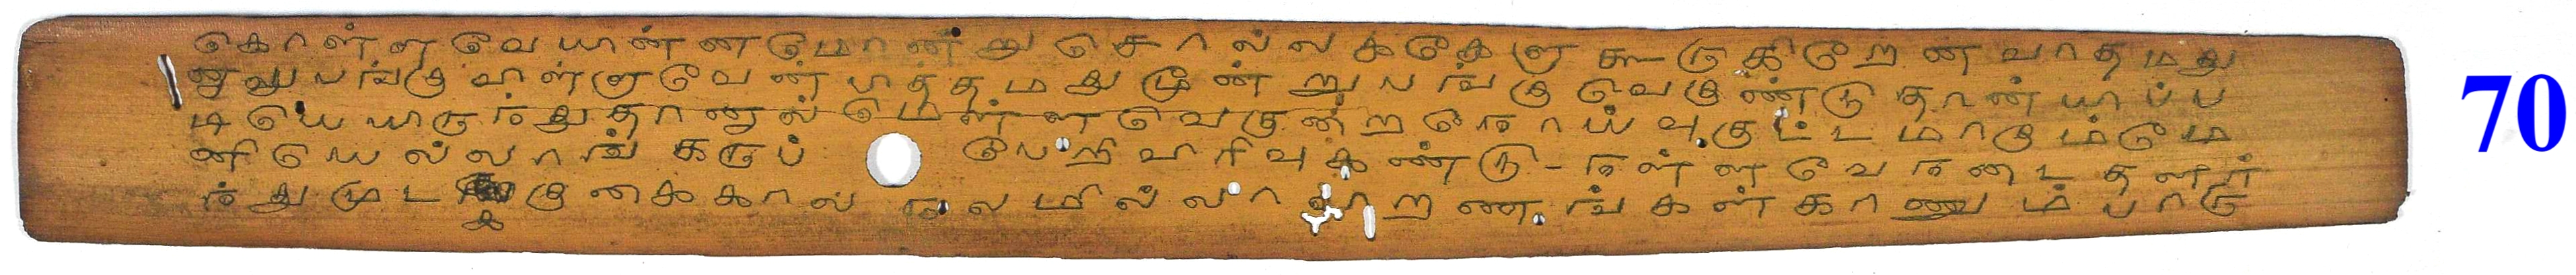 கொள்ளவெயின்னமொண்று சொல்லக்கேளு கூடுகிறேன வாதமது
னூறுபங்கு வள்ளுவேன் பித்தமது மூண்றுபங்கு வெகுண்டுதான் யிப்ப
டியெயிருந்துதானால் மெள்ளவெகுன்றநொய்வு குட்டமாகும்மே
னியெல்லாங் கடுப் பேறிவரிவு கண்டு - நள்ளவே நடைதளர்
ந்து முடக்கு கைகால் நலமில்லா றணங்கள் காணும் பாரு
70